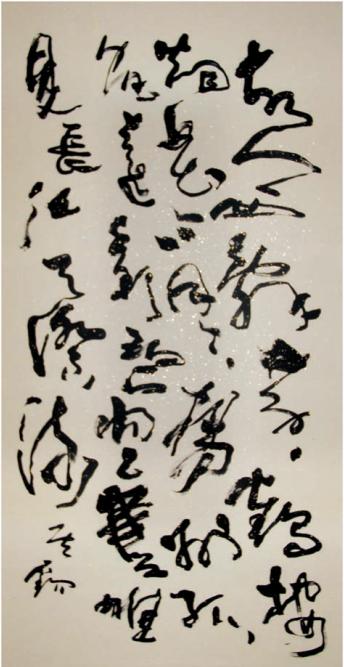 故人西辭黄鶴樓
烟花三月下揚州孤
帆遠影碧空盡唯
見長江天際流